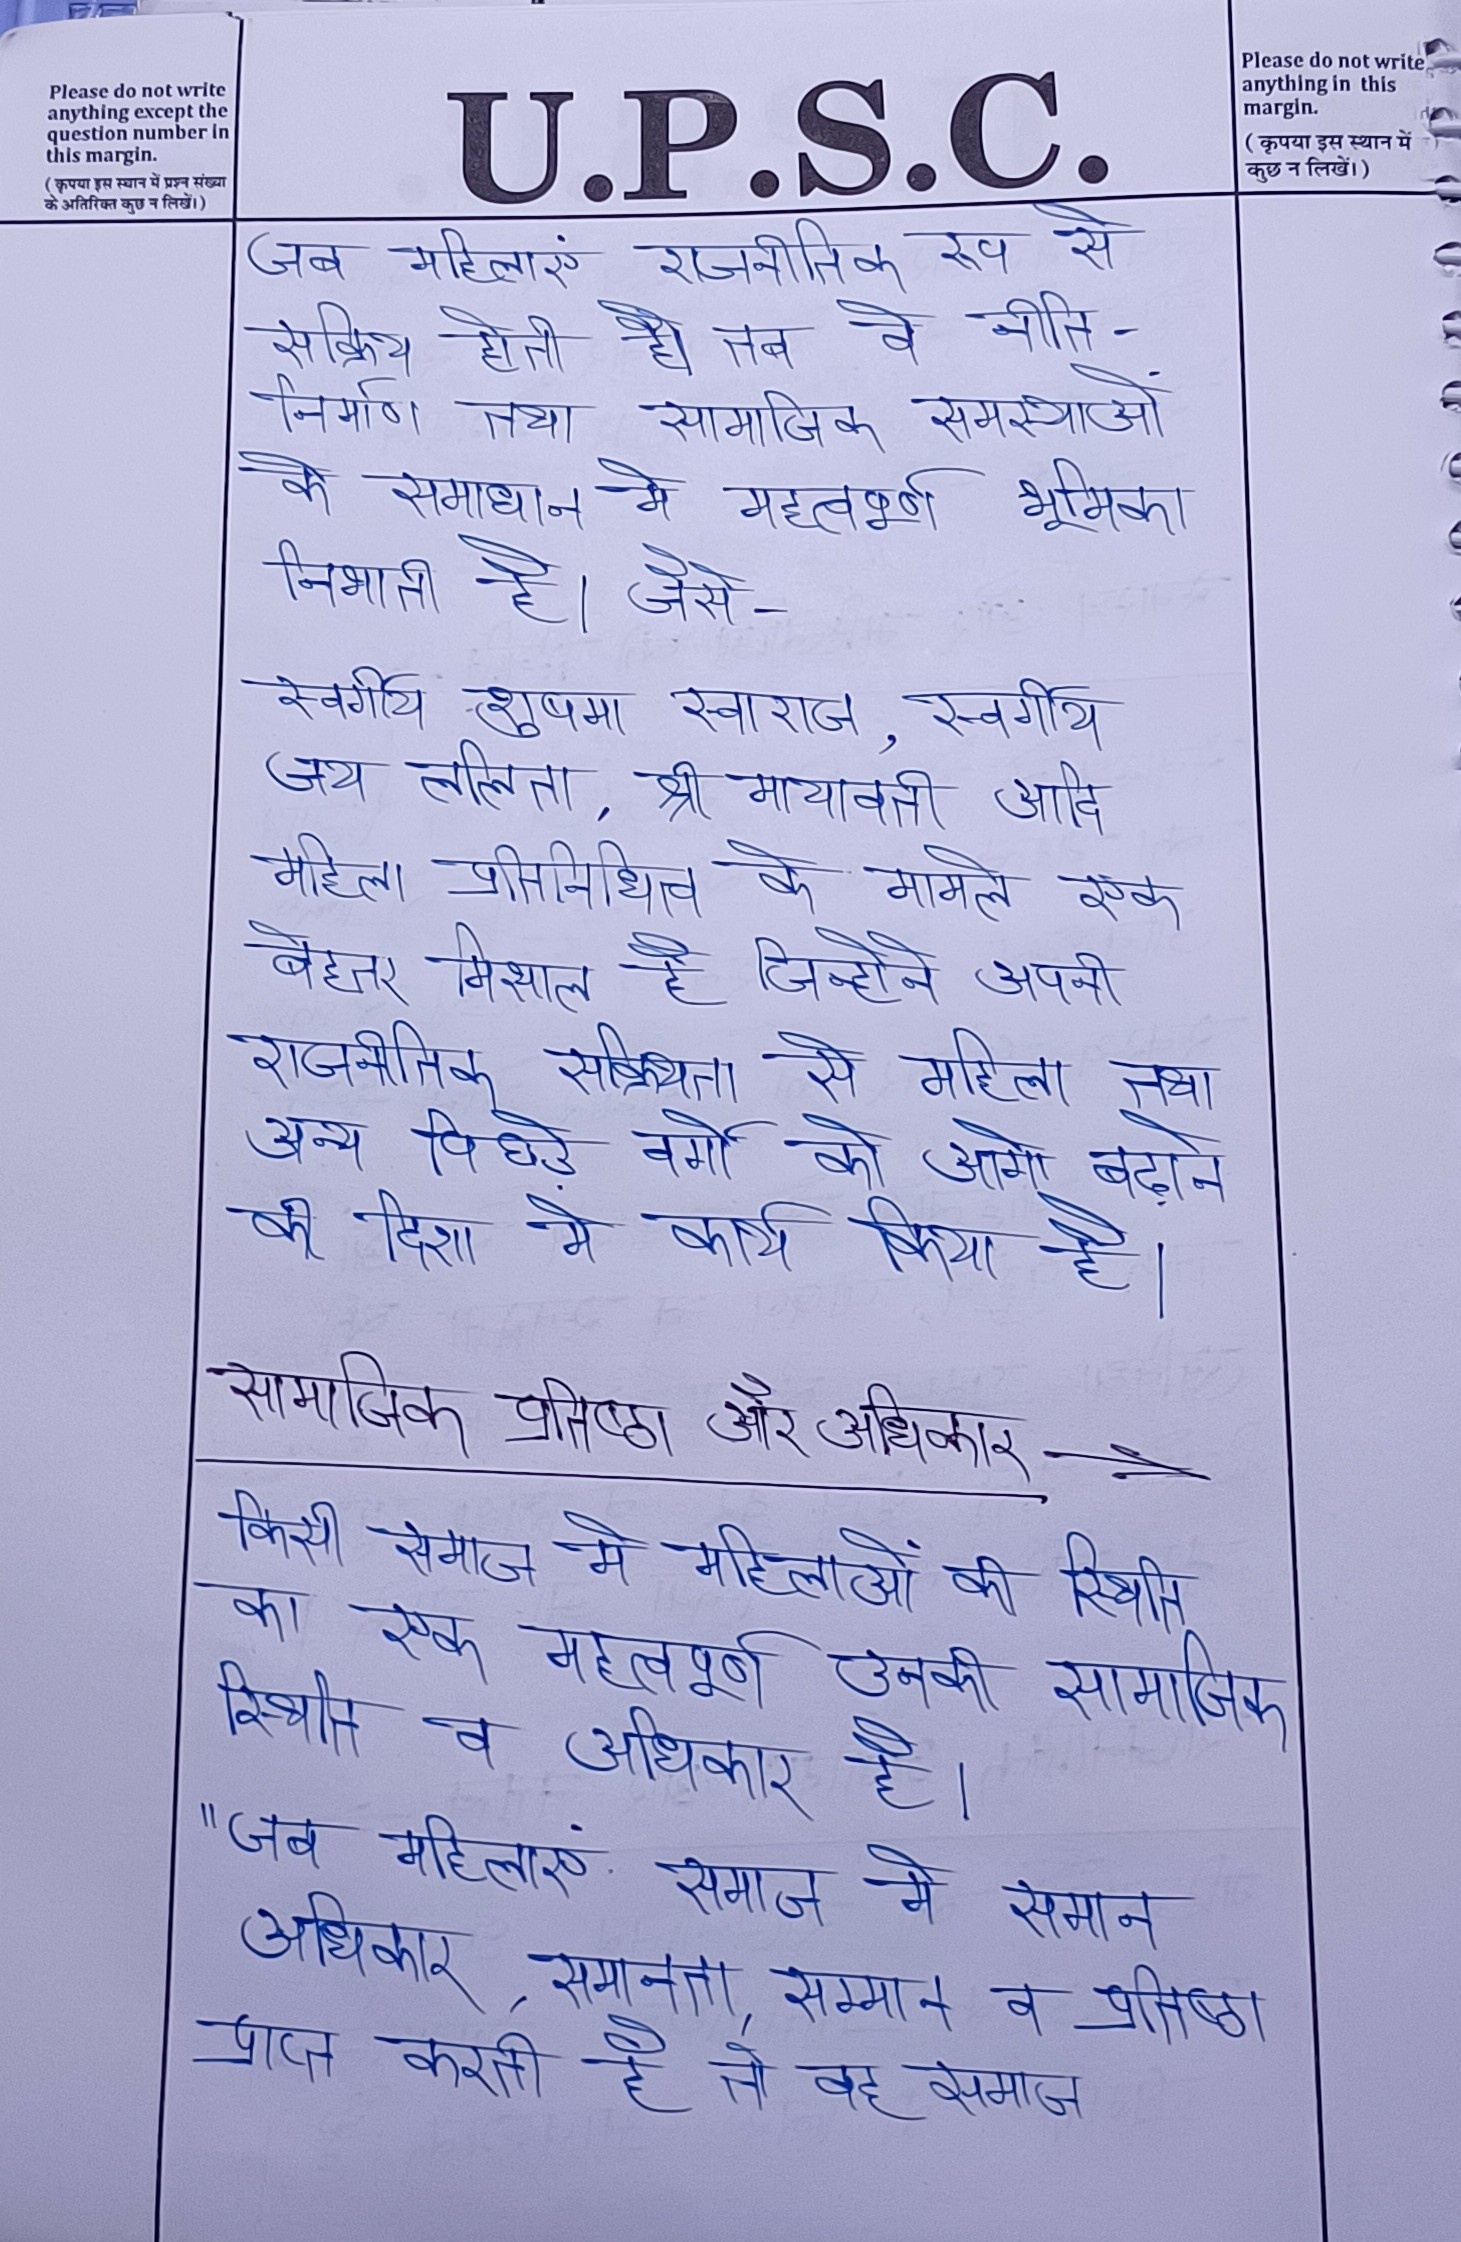 Please do not write
anything except the
question number in
this margin.
(कृपया इस स्थान में प्रश्न संख्या
के अतिरिक्त कुछ न लिखें।)
U.P.S.C.
Please do not write
anything in this
margin.
(कृपया इस स्थान में
कुछ न लिखें।)
जब महिलाएं राजनीतिक रूप से
सक्रिय होती है। तब वे नीति-
निर्माण तथा सामाजिक समस्याओं
के समाधान मे महत्वपूर्ण भूमिका
निभाती है। जैसे-
स्वर्गीय शुषमा स्वाराज, स्वर्गीय
जय ललिता, श्री मायावती आदि
महिला प्रतिनिधित्व के मामले एक
बेहतर मिशाल है जिन्होने अपनी
राजनीतिक सक्रियता से महिला तथा
अन्य पिछड़े वर्गो को आगे बढ़ाने
की दिशा मे कार्य किया है।
सामाजिक प्रतिष्ठा और अधिकार →
किसी समाज मे महिलाओं की स्थिति
का एक महत्वपूर्ण उनकी सामाजिक
स्थिति व अधिकार है।
"जब महिलाएं समाज मे समान
अधिकार, समानता, सम्मान व प्रतिष्ठा
प्राप्त करती है तो वह समाज